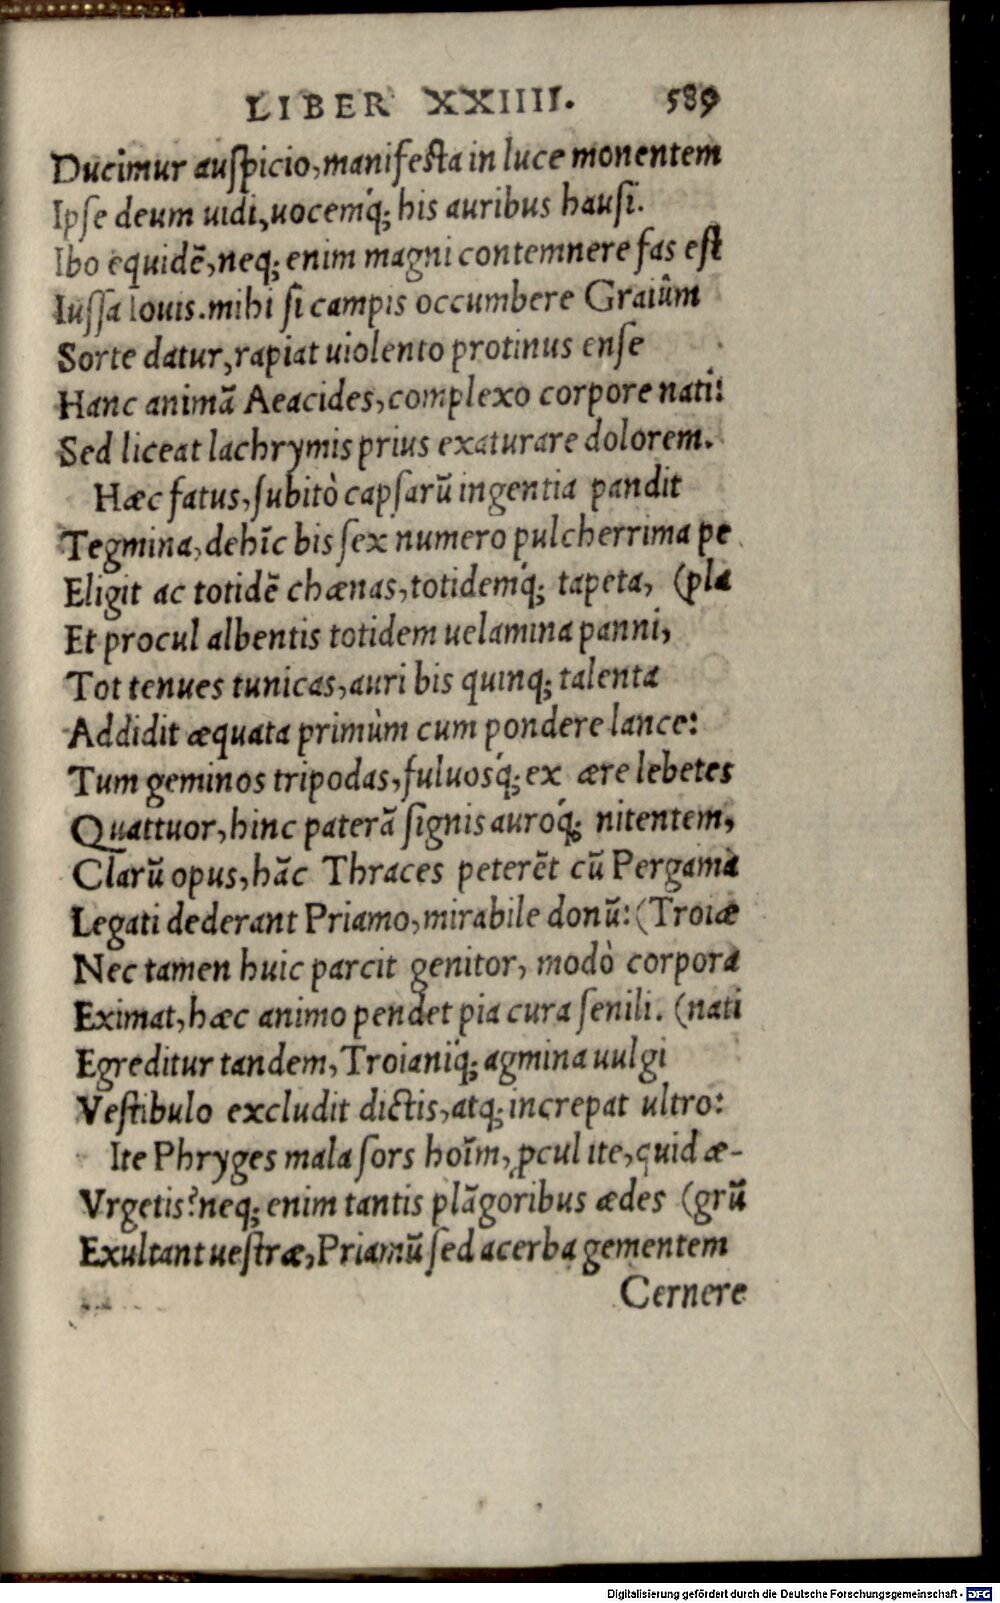 LIBER XXIIII. 589
Ducimur auspicio, manifesta in luce monentem
Ipse deum uidi, uocemq́; his auribus hausi.
Ibo equidẽ, neq; enim magni contemnere fas est
Iussa Iouis. mihi si campis occumbere Graiûm
Sorte datur, rapiat uiolento protinus ense
Hanc animã Aeacides, complexo corpore nati:
Sed liceat lachrymis prius exaturare dolorem.
Hæc fatus, subitò capsarũ ingentia pandit
Tegmina, dehĩc bis sex numero pulcherrima pe
Eligit ac totidẽ chænas, totidemq́; tapeta, (pla
Et procul albentis totidem uelamina panni,
Tot tenues tunicas, auri bis quinq; talenta
Addidit æquata primùm cum pondere lance:
Tum geminos tripodas, fuluosq́; ex ære lebetes
Quattuor, hinc paterã signis auroq́; nitentem,
Clarũ opus, hãc Thraces peterẽt cũ Pergama
Legati dederant Priamo, mirabile donũ: (Troiæ
Nec tamen huic parcit genitor, modò corpora
Eximat, hæc animo pendet pia cura senili. (nati
Egreditur tandem, Troianiq́; agmina uulgi
Vestibulo excludit dictis, atq; increpat ultro:
Ite Phryges mala sors hoĩm, ꝓcul ite, quid æ-
Vrgetis? neq; enim tantis plãgoribus ædes (grũ
Exultant uestræ, Priamũ sed acerba gementem
Cernere
Digitalisierung gefördert durch die Deutsche Forschungsgemeinschaft - DFG